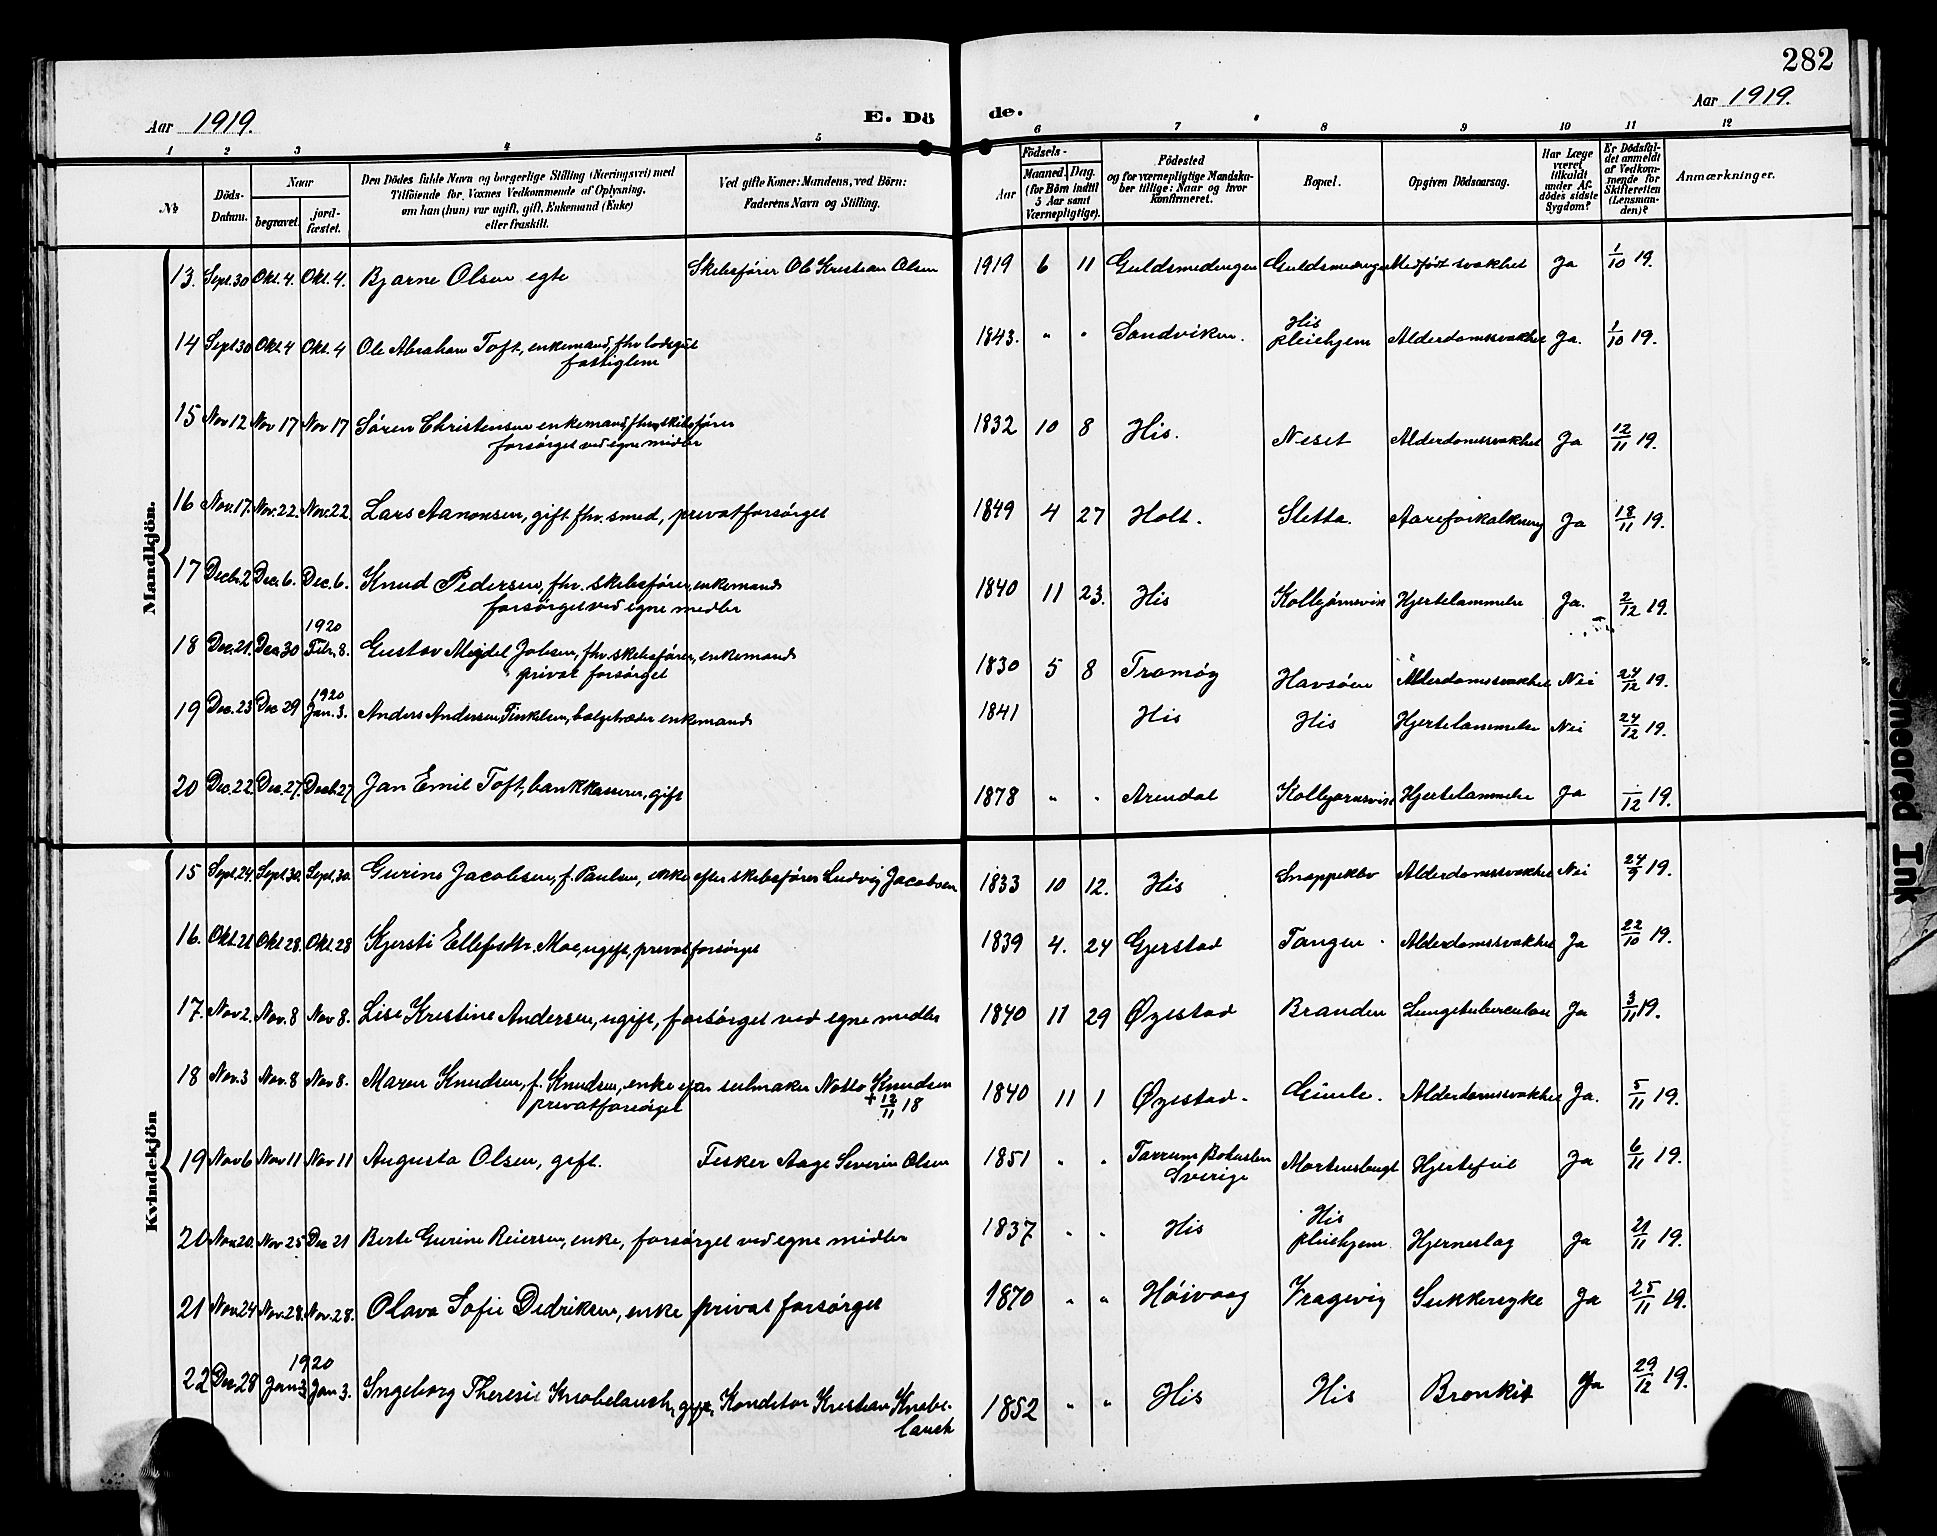 282
Aar 1919.
E. Dö
de.
Aar 1919.
1 2 3 4 5 6 7 8 9 10 11 12
№
Döds-
Datum.
Naar
begravet.
jord-
fæstet.
Den Dödes fulde Navn og borgerlige Stilling (Næringsvei) med
Tilföiende for Voxnes Vedkommende af Oplysning,
om han (hun) var ugift, gift, Enkemand (Enke)
eller fraskilt.
Ved gifte Koner: Mandens, ved Börn:
Faderens Navn og Stilling.
Födsels-
Aar
Maaned. Dag.
(for Börn indtil
5 Aar samt
Værnepligtige).
Födested
og for værnepligtige Mandska-
ber tillige: Naar og hvor
konfirmeret.
Bopæl.
Opgiven Dödsaarsag.
Har Læge
været
tilkaldt
under Af-
dödes sidste
Sygdom?
Er Dödsfal-
det anmeldt
af Vedkom-
mende for
Skifteretten
(Lensman-
den)?
Anmærkninger.
Mandkjön.
13. Sept. 30 Okt. 4. Okt. 4. Bjarne Olsen egte Skibsfører Ole Kristian Olsen 1919 6 11 Guldsmedengen Guldsmedengen Medfødt svakhet Ja 1/10 19.
14 Sept 30 Okt 4 Okt. 4 Ole Abraham Toft, enkemand, fhv. lods, gml
fattiglem 1843. " " Sandviken. His
pleiehjem Alderdomssvakhet Ja. 1/10 19.
15 Nov 12 Nov 17 Nov 17 Søren Christensen enkemand, fhv. skibsfører
forsørget ved egne midler 1832 10 8 His. Neset Alderdomssvakhet Ja 12/11 19.
16 Nov. 17. Nov. 22. Nov. 22. Lars Aanonsen, gift fhv. smed, privatforsørget 1849 4 27 Holt. Sletta. Aareforkalkning Ja 18/11 19.
17 Decb. 2 Dec. 6. Dec. 6. Knud Pedersen, fhv. skibsfører, enkemand
forsørget ved egne midler 1840 11 23. His Kolbjørnsvik Hjertelammelse Ja. 2/12 19.
18 Dec. 21. Dec. 30 1920
Febr. 8. Gustav Meydel Jobsen, fhv. skibsfører, enkemand
privat forsørget 1830 5 8 Tromøy Havsøen Alderdomssvakhet Nei 24/12 19.
19 Dec. 23 Dec 29 1920
Jan. 3. Anders Andersen, Finkelsen, bølgetræder enkemand 1841 His His Hjertelammelse Nei 24/12 19.
20 Dec. 22. Dec. 27. Decb. 27 Jan Emil Toft, bankkasserer, gift 1878 " " Arendal Kolbjørnsvik Hjertelammelse Ja /12 19.
Kvindekjön
15 Sept. 24. Sept. 30. Sept. 30. Gurine Jacobsen, f. Paulsen, enke efter skibsfører Ludvig Jacobsen 1833 10 12. His Snappekbv Alderdomssvakhet Nei 24/9 19.
16. Okt. 21 Okt. 28. Okt. 28 Kjersti Ellefsdtr. Moe, ugift, privat forsørget 1839 4. 24 Gjerstad Tangen Alderdomssvakhet Ja 22/10 19.
17. Nov 2. Nov. 8 Nov 8. Lise Kristine Andersen, ugift, forsørget ved egne midler 1840 11 29 Øyestad Branden Lungetuberculose Ja 3/11 19.
18 Nov. 3 Nov. 8 Nov 8. Maren Knudsen, f. Knudsen, enke efter seilmaker Notto Knudsen
privatforsørget + 12/11 18 1840 11 1 Øyestad. Gimle. Alderdomssvakhet Ja. 5/11 19.
19 Nov 6 Nov 11 Nov 11 Augusta Olsen, gift. Fisker Aage Severin Olsen 1851 " " Tarrum Bohuslen
Sverige Mortensbugt Hjertefeil Ja 6/11 19.
20 Nov. 20. Nov 25 Dec 21 Berte Gurine Reiersen, enke, forsørget ved egne midler 1837 " " His His
pleiehjem Hjerneslag Ja 21/11 19.
21 Nov. 24 Nov. 28. Nov. 28. Olava Sofie Dedriksen, enke privat forsørget 1870 " " Høivaag Vragevig Sukkersyke Ja 25/11 19.
22 Dec 28 1920
Jan 3 Jan 3. Ingeborg Theresie Knobelauch, gift, Konditor Kristian Knobe-
lauch 1852 " " His His Bronkit Ja 29/12 19.
Smeared Ink